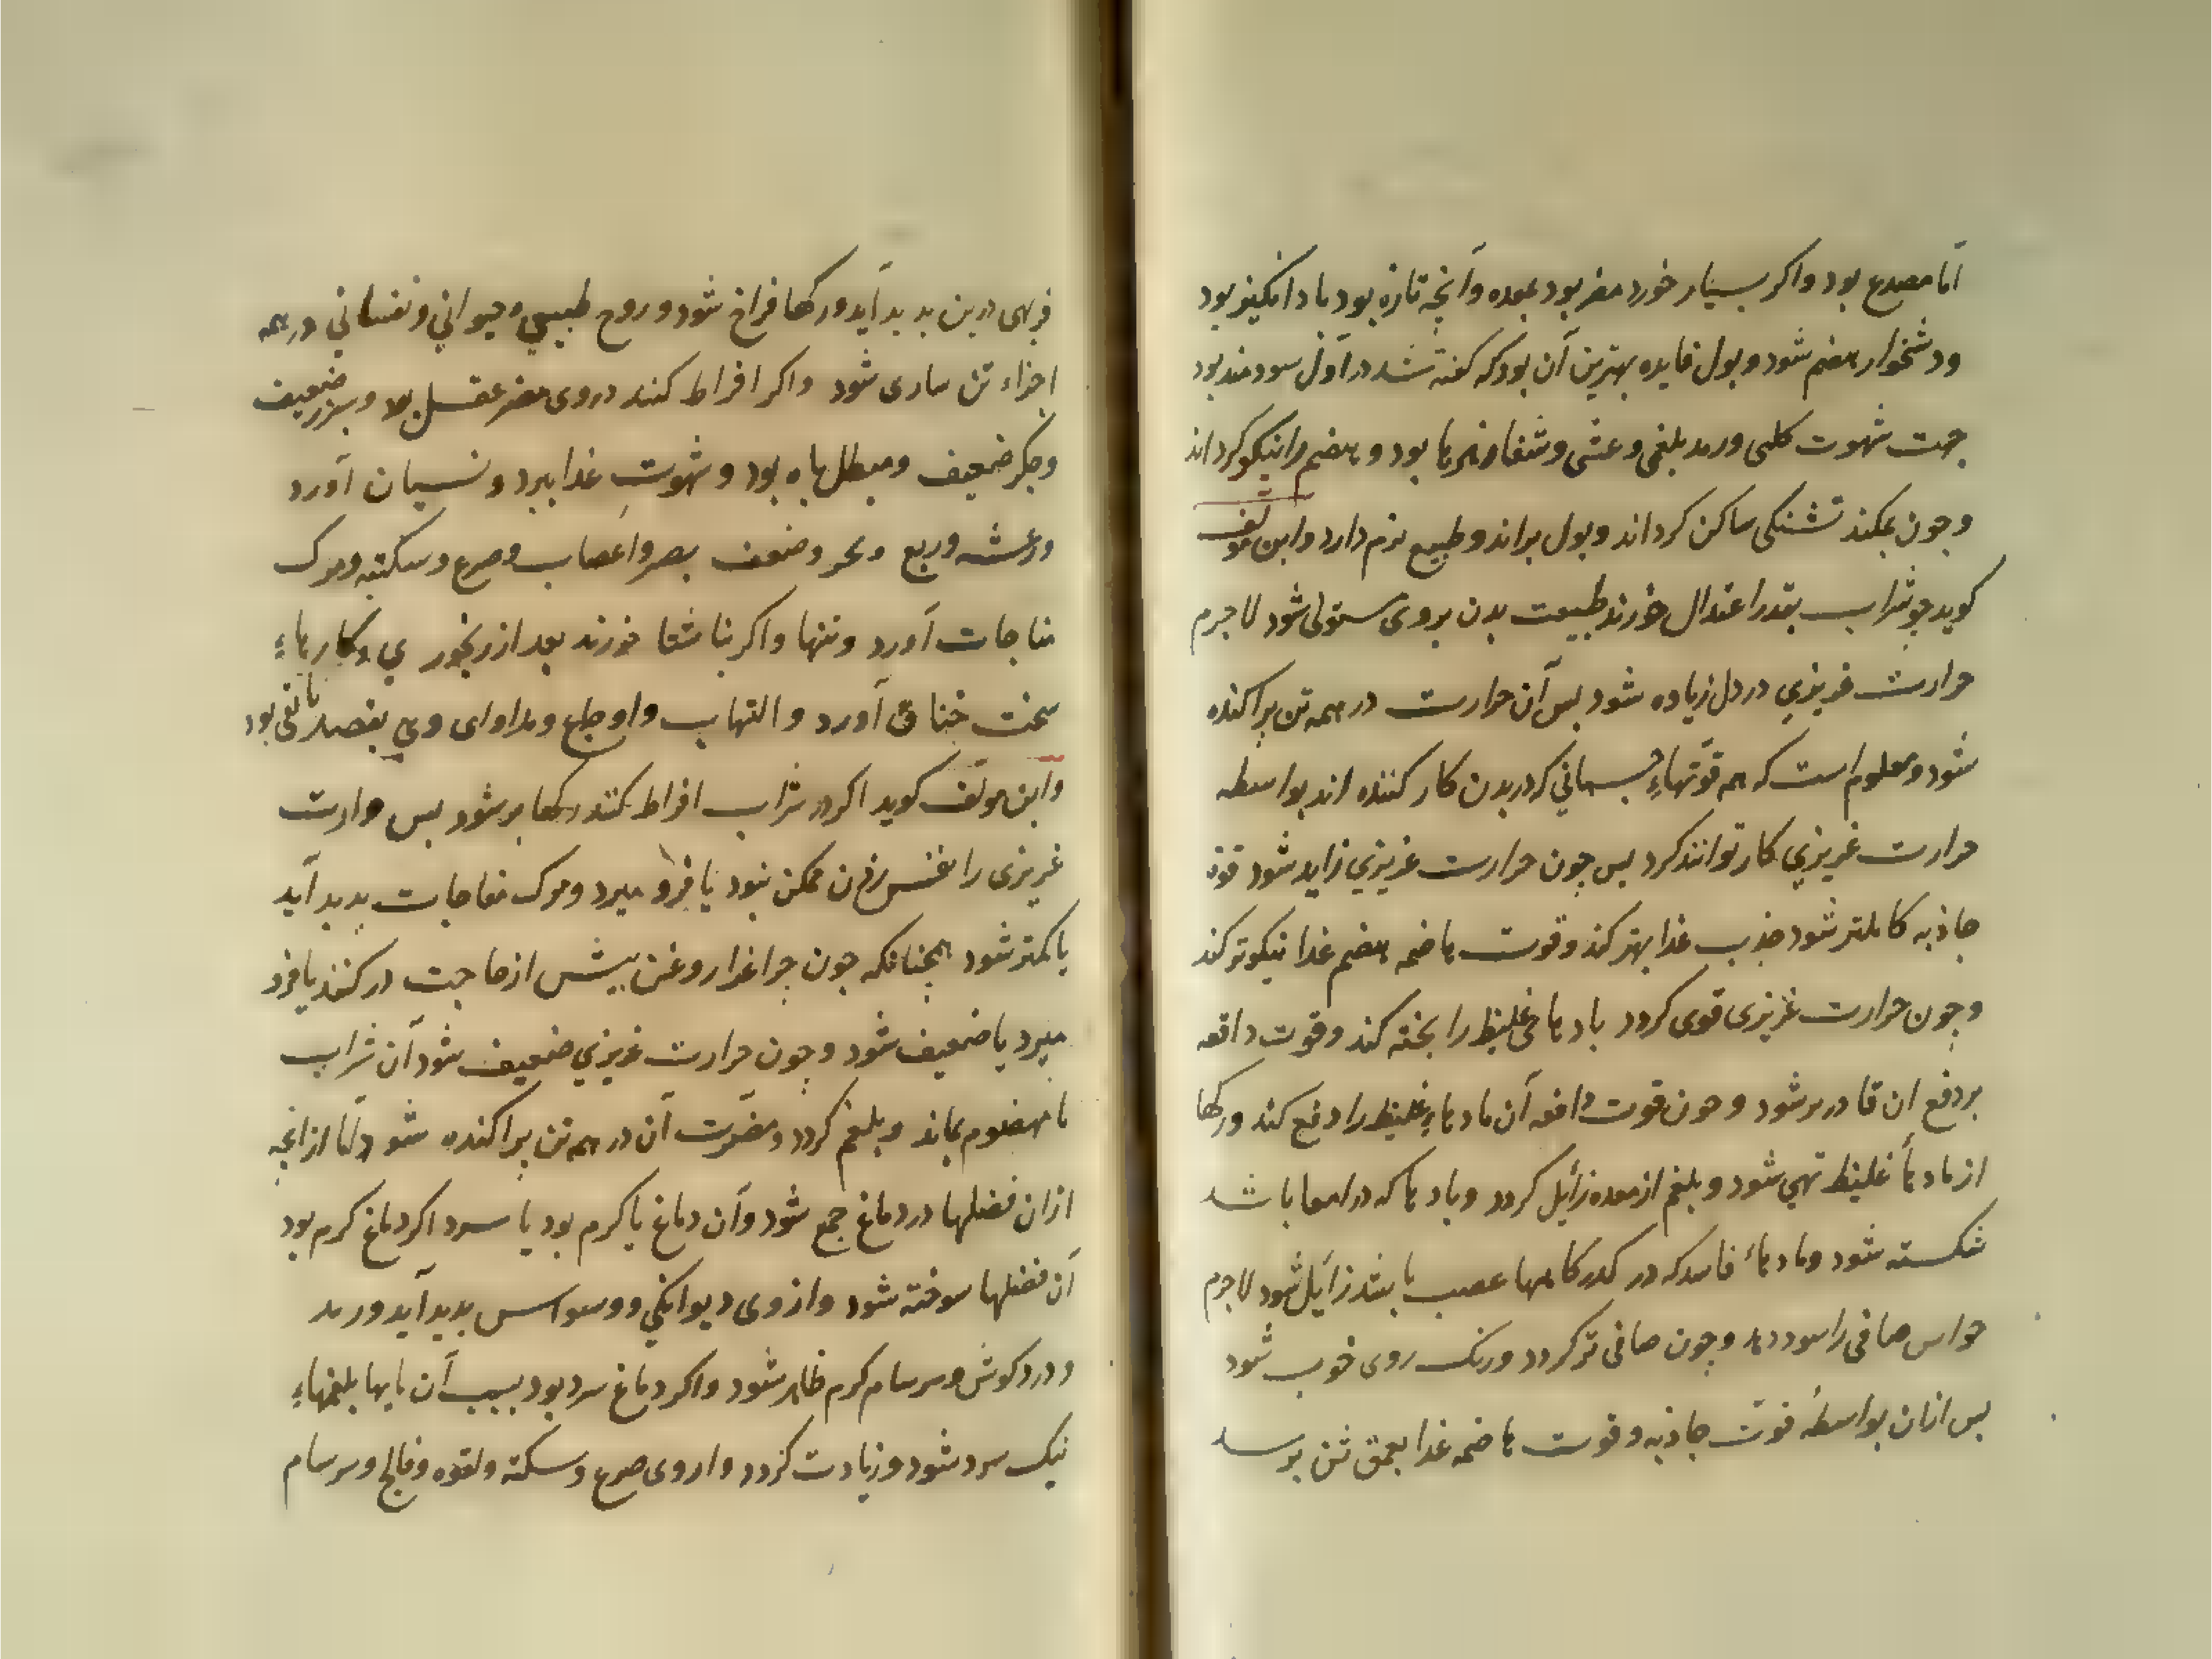 اما مصدع بود و اکر بسیار خورد مضر بود بمعده و آنچه تازه بود باد انکیز بود
و دشخوار هضم شود و بول فایده بهترین آن بود که کفته شد در اول سودمند بود
جهت شهوت کلبی و رمد بلغمی و غشی و شفاء زهرها بود و هضم را نیکو کرداند
و چون بمکند تشنکی ساکن کرداند و بول براند و طبیع نرم دارد و ابن مولف
کوید چو شراب بقدر اعتدال خورند طبیعت بدن بر وی مستولی شود لاجرم
حرارت غریزي در دل زیاده شود بس آن حرارت در همه تن پراکنده
شود و معلوم است که همه قوتهاءِ جسماني که در بدن کار کننده اند بواسطه
حرارت غریزي کار توانند کرد بس چون حرارت غریزي زاید شود قوة
جاذبه کاملتر شود جذب غذا بهتر کند و قوت هاضمه هضم غذا نیکوتر کند
و چون حرارت غریزی قوی کردد بادهاءِ غلیظ را پخته کند و قوت دافعه
بر دفع ان قادر بر شود و چون قوت دافعه آن مادهاءِ غلیظ را دفع کند و رکها
از مادهاء غلیظ تهي شود و بلغم از معده زایل کردد و بادها که در امعا باشد
شکسته شود و مادهاء فاسد که در کدرکاهها عصب باشد زایل شود لاجرم
حواس صافی را سود دهد و چون صافی تر کردد و رنک روی خوب شود
بس ازان بواسطهٔ قوت جاذبه و قوت هاضمه غذا بعمق تن برسد
فربهی درین پدید آید و رکها فراخ شود و روح طبیعي و حیواني و نفساني در همه
اجزاء تن ساری شود و اکر افراط کنند در وی مضر عقل بود و سپرز ضعیف
و جکر ضعیف و مبطل باه بود و شهوت غذا ببرد و نسیان آورد
و رعشه و ربع و بخر و ضعف بصر و اعصاب و صرع و سکته و مرک
مناجات آورد و تنها و اکر بناشتا خورند بعد از رنجوري و کارهاءِ
سخت خناق آورد و التهاب و اوجاع و مداوای وي بفصد یا بقی بود
و ابن مولف کوید اکر در شراب افراط کنند رکها بر شود بس حرارت
غریزی را نفس زدن ممکن نبود یا فرو میرد و مرک مفاجات پدید آید
یا کمتر شود همچنانکه چون چراغ را روغن بیش از حاجت در کنند یا فرو
میرد یا ضعیف شود و چون حرارت غریزي ضعیف شود آن شراب
نامهضوم بماند و بلغم کردد و مضرت آن در همه تن پراکنده شود اما از انچه
ازان فضلها در دماغ جمع شود و آن دماغ یا کرم بود یا سرد اکر دماغ کرم بود
آن فضلها سوخته شود و از وی دیوانکي و وسواس پدید آید و رمد
و درد کوش و سرسام کرم ظاهر شود و اکر دماغ سرد بود بسبب آن بابها بلغمهاءِ
نیک سرد شود و زیادت کردد و از وی صرع و سکته و لقوه و فالج و سرسام